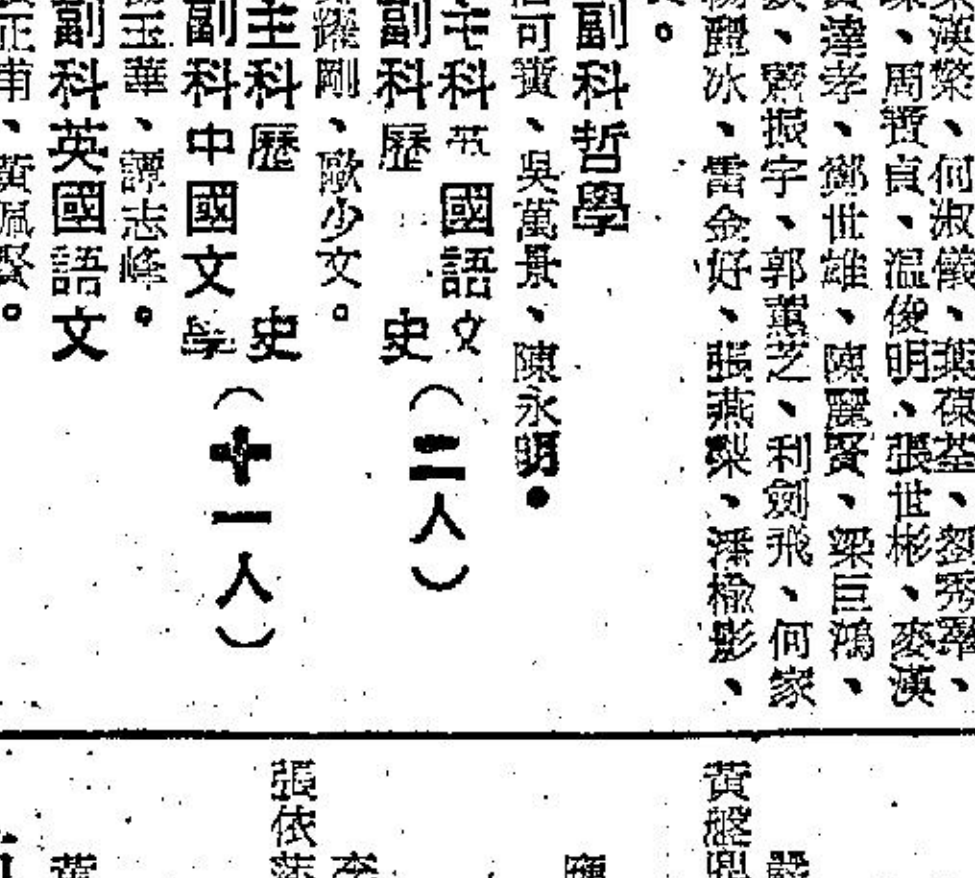 漢榮、何淑儀、葉葆荃、劉秀翠、
、周賢貞、温俊明、張世彬、麥漢
達孝、鄧世雄、陳麗賢、梁巨鴻、
、竇振宇、郭蕙芝、利劍飛、何家
楊麗冰、雷金好、張燕梨、潘楡影、
。
副科哲學
可賓、吳萬景、陳永明。
主科英國語文
副科歷史（二人）
耀剛、歐少文。
主科歷史
副科中國文學（十一人）
玉華、譚志峰。
副科英國語文
正甫、黃佩賢。
黃盤鼎
張依萍
李
黃